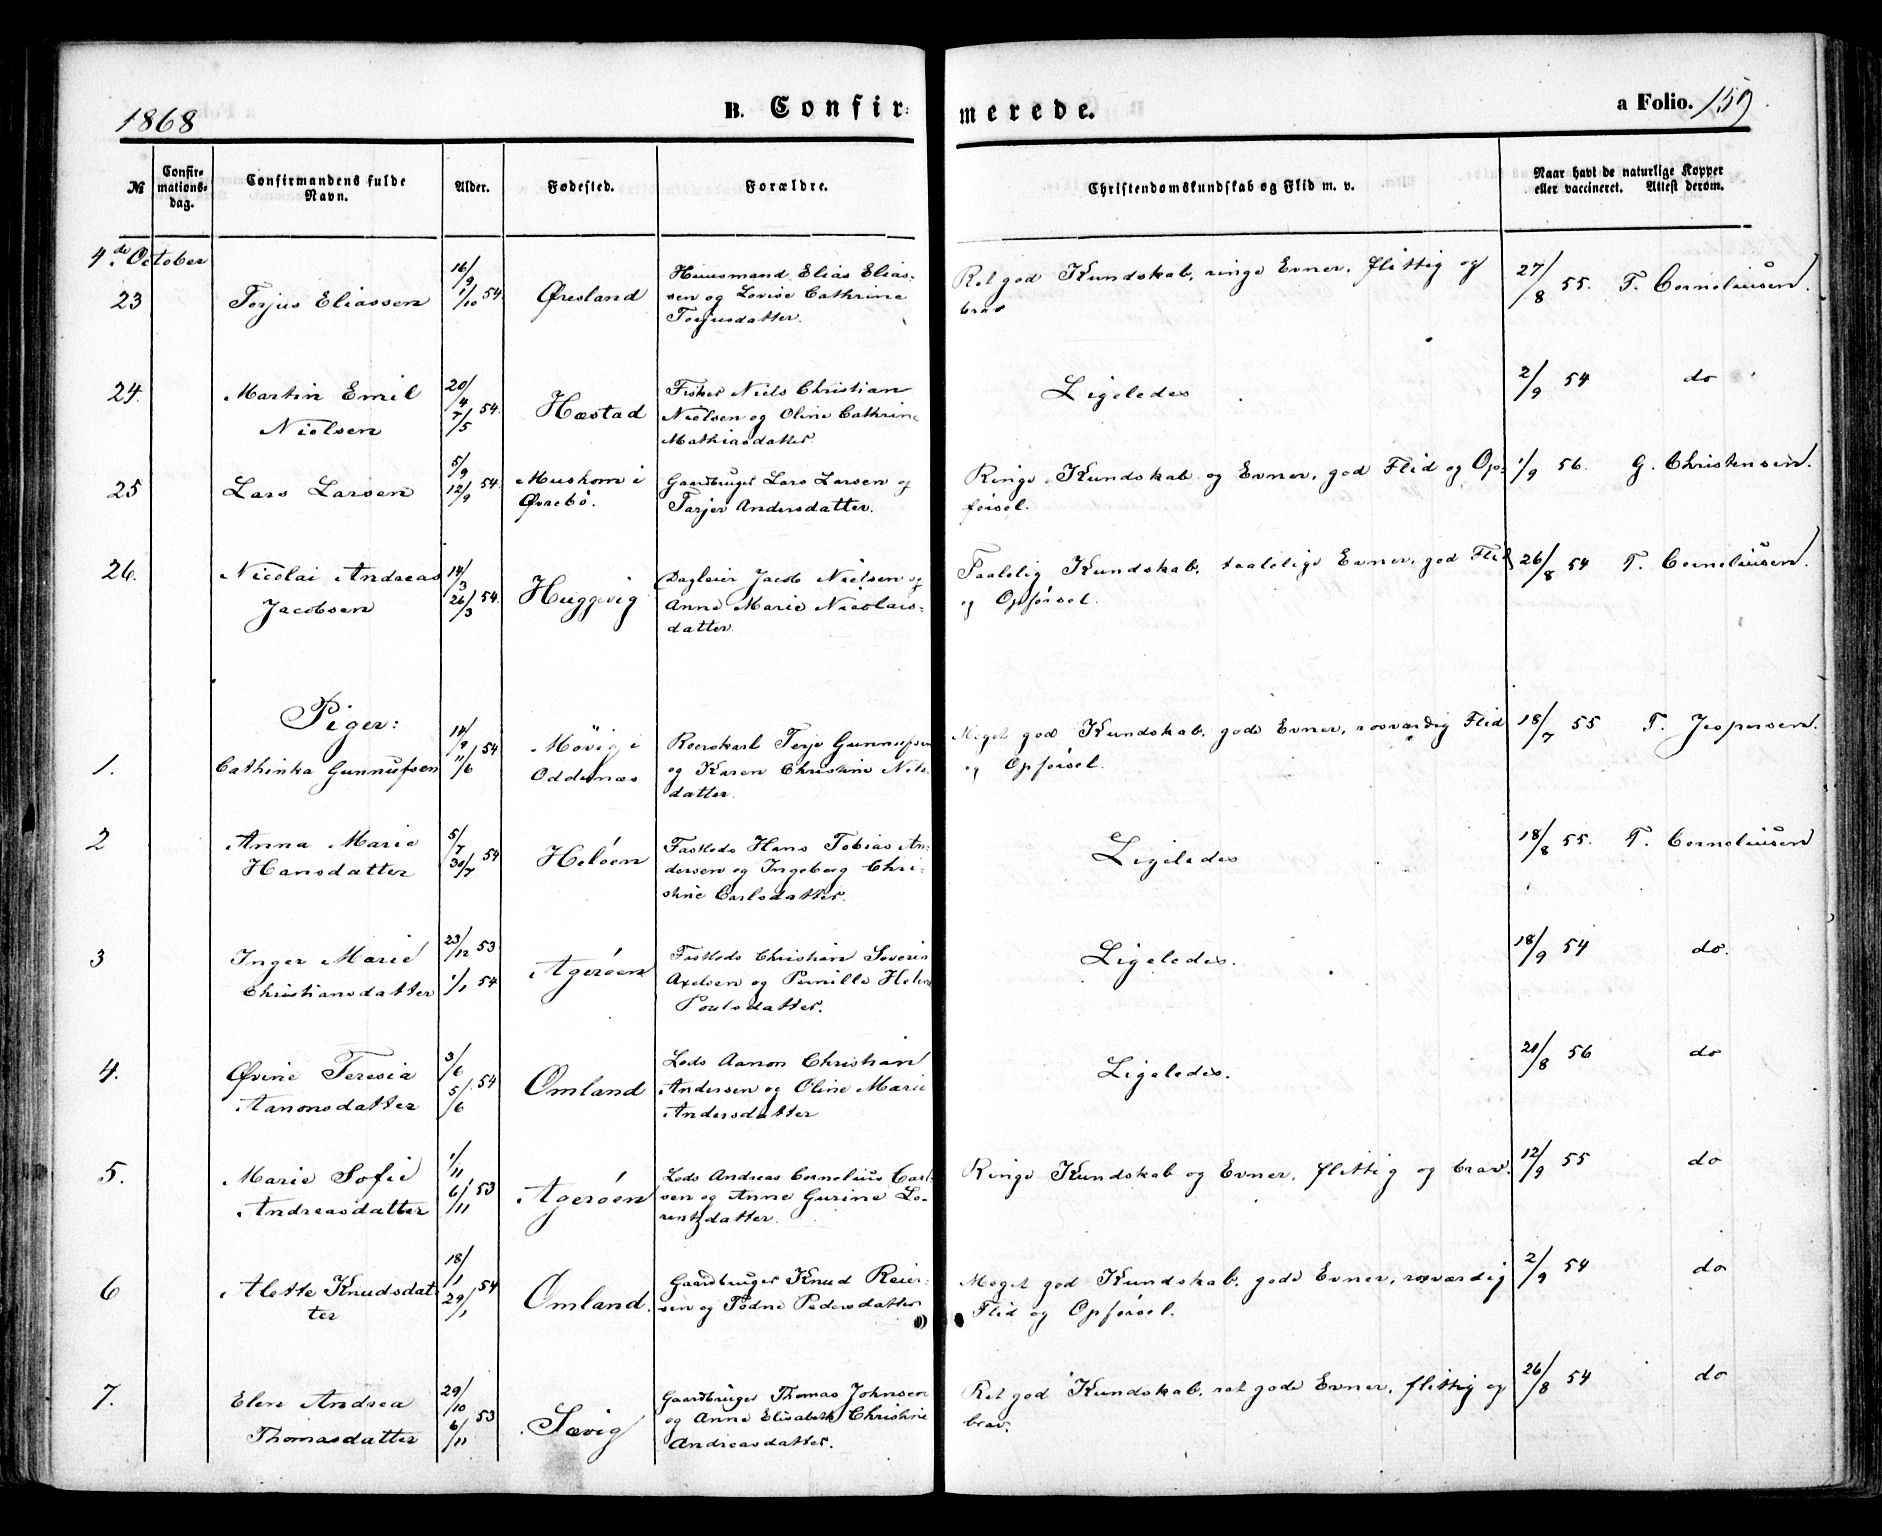 1868 B. Confir: merede. a Folio. 159.
№ Confir- Confirmandens fulde Alder. Fødested. Forældre. Christendomskundskab og Flid m. v. Naar havt de naturlige Kopper
mations- Navn. eller vaccineret. Attest derom.
dag.
4de October
23 Torjus Eliassen 16/9 1/10 54. Øresland Huusmand Elias Elias- Ret god Kundskab, ringe Evner, flittig og 27/8 55. T. Corneliusen.
sen og Lovise Cathrine brav
Torjusdatter.
24. Martin Emil 20/4 7/5 54. Hæstad Fisker Niels Christian Ligeledes 2/9 54 do
Nielsen Nielsen og Oline Cathrine
Mathiasdatter.
25 Lars Larsen 5/9 12/9 54. Muskom i Gaardbruger Lars Larsen og Ringe Kundskab og Evner, god Flid og Op- 1/9 56. G. Christensen.
Øvrebö. Tarjer Andersdatter. försel.
26. Nicolai Andreas 14/3 26/3 54. Huggevig Dagleier Jacob Nielsen og Taalelig Kundskab, taalelige Evner, god Flid 26/8 54 T. Corneliusen.
Jacobsen Anne Marie Nicolais- og Opförsel.
datter.
Piger:
1. Cathinka Gunnufsen 14/9 11/6 54 Mövig i Reerskarl Terje Gunnufsen Meget god Kundskab, gode Evner, rosværdig Flid 18/7 55 T. Jespersen.
Oddernæs og Karen Christine Nils- og Opförsel.
datter.
2 Anna Marie 5/7 30/7 54 Helöen Faskeds Hans Tobias An- Ligeledes 18/8 55. T. Corneliusen
Hansdatter dersen og Ingeborg Chri-
stine Carlsdatter.
3 Inger Marie 23/12 53 Ageröen Faskeds Christian Severin Ligeledes. 18/9 54 do.
Christiansdatter 1/1 54 Axelsen og Pernille Helene
Poulsdatter.
4. Øvine Teresia 3/6 5/6 54 Omland Lods Aanon Christian Ligeledes. 21/8 56 do
Aanonsdatter Andersen og Oline Marie
Andersdatter
5. Marie Sofie 1/11 6/11 53 Ageröen Lods Andreas Cornelius Carl- Ringe Kundskab og Evner, flittig og brav. 12/9 55 do
Andreasdatter sen og Anne Gurine Lo-
rentzdatter.
6 Alette Knudsdat- 18/1 29/1 54 Omland. Gaardbruger Knud Reier- Meget god Kundskab, gode Evner, rosværdig 2/9 54 do
ter sen og Tödne Pedersdatter Flid og Opförsel.
7. Elen Andrea 29/10 6/11 53 Sævig Gaardbruger Thomas Johnsen Ret god Kundskab, ret gode Evner, flittig og 26/8 54 do
Thomasdatter og Anne Elisabeth Christine brav.
Andreasdatter.